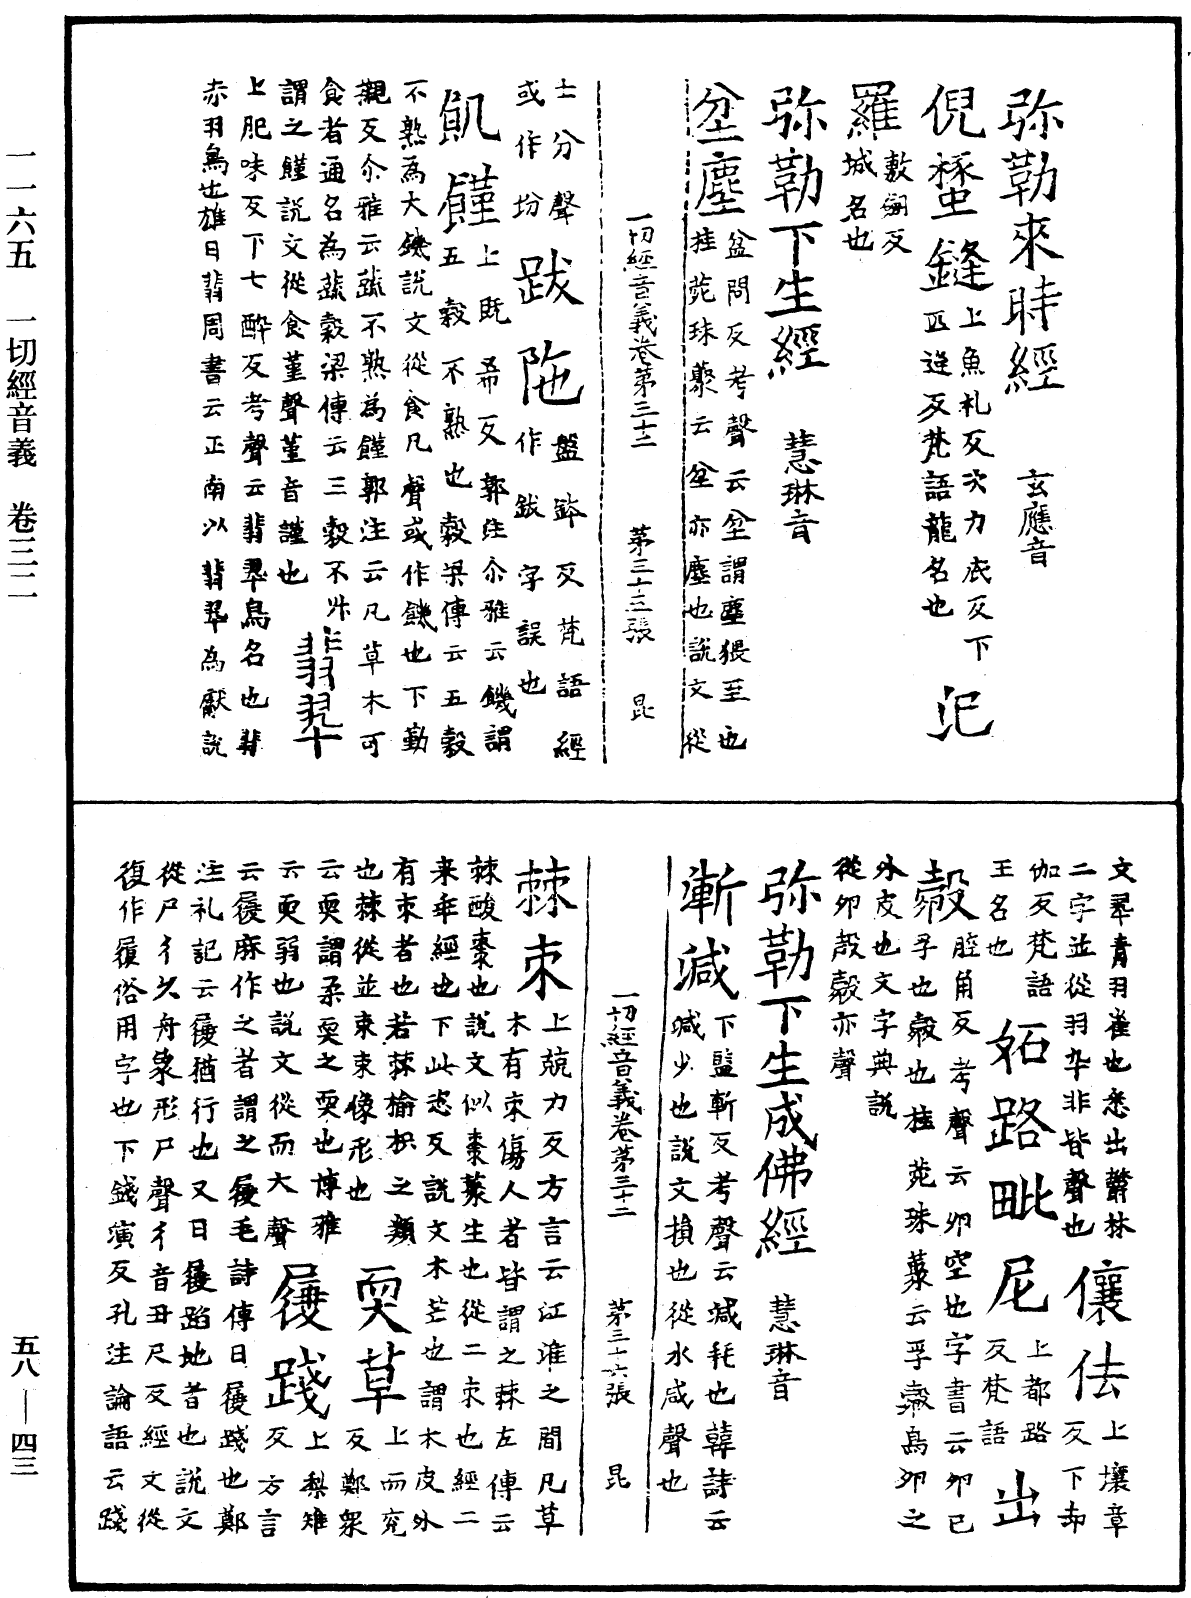 一一六五 一切經音義 卷三二
五八—四三
弥勒來時經 玄應音
倪蟸鏠上魚礼反次力底反下匹逢反梵語龍名也 汜
羅敷劒反城名也
弥勒下生經 慧琳音
坌塵盆問反考聲云坌謂塵猥至也桂菀珠藂云坌亦塵也說文從
一切經音義卷第三十二 第三十三張 昆
士分聲或作坋 跋陁盤鉢反梵語經作鈸字誤也
飢饉上既希反郭注尒雅云饑謂五穀不熟也穀梁傳云五穀
不熟為大饑說文從食几聲或作饑也下勤
覲反尒雅云蔬不熟為饉郭注云凡草木可
食者通名為蔬穀梁傳云三穀不升
謂之饉說文從食堇聲堇音謹也 翡翠
上肥味反下七醉反考聲云翡翠鳥名也翡
赤羽鳥也雄曰翡周書云正南以翡翠為獻說
文翠青羽雀也悉出欝林
二字並從羽卒非皆聲也 儴佉上壤章反下却
伽反梵語王名也 妬路毗尼上都路反梵語 出
㲉腔角反考聲云卵空也字書云卵已
孚也㲉也桂菀珠藂云孚㲉鳥卵之
外皮也文字典說
從卵㱿㲉亦聲
弥勒下生成佛經 慧琳音
漸減下監斬反考聲云減耗也韓詩云
減少也說文損也從水咸聲也
一切經音義卷第三十二 第三十六張 昆
棘朿上兢力反方言云江淮之間凡草
木有朿傷人者皆謂之棘左傳云
棘酸棗也說文似棗藂生也從二朿也經二
来乖經也下此恣反說文木芒也謂木皮外
有朿者也若棘榆枳之類
也棘從並朿朿像形也 耎草上而兖反鄭衆
云耎謂柔耎之耎也博雅
云耎弱也說文從而大聲 履踐上梨雉反方言
云履麻作之者謂之履毛詩傳曰履踐也鄭
注礼記云履猶行也又曰履蹈地者也說文
從尸彳夂舟象形尸聲彳音丑尺反經文從
復作履俗用字也下錢演反孔注論語云踐